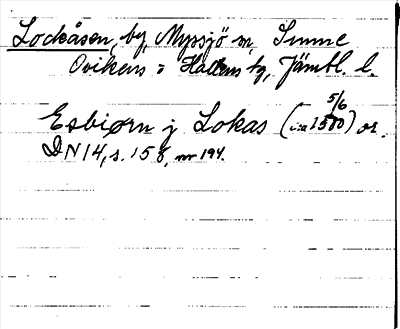 Lockåsen, by, Myssjö sn, Sunne
Ovikens o Hallens tg, Jämtl. l.
5/6
Esbiørn j Lokas (ca 1500) or.
DN 14, s. 158, nr 194.